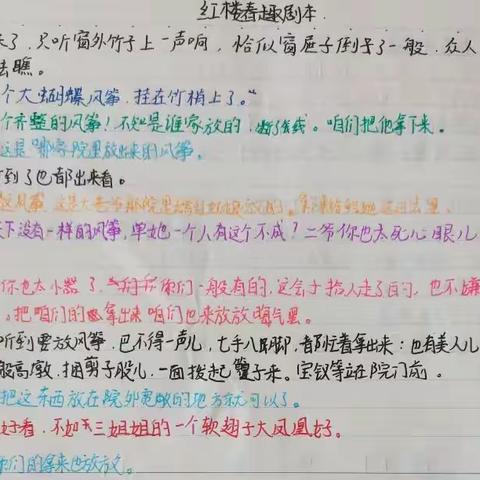 红楼春趣剧本
了，只听窗外竹子上一声响，恰似窗屉子倒了一般，众人
去瞧。
个大蝴蝶风筝，挂在竹梢上了。”
个齐整的风筝！不知是谁家放的，断了线。咱们把他拿下来。
这是哪家院里放出来的风筝。
听到了也都出来看。
风筝，这是大老爷那院里
天下没有一样的风筝，单她一个人有这个不成？二爷你也太死心眼儿
你也太小器了，你们一般有的，这会子拾人走了的，也不嫌
，把咱们的拿出来咱们也来放放晦气。
听到要放风筝，巴不得一声儿，七手八脚，都忙着拿出来：也有美人儿
般高墩，捆剪子股儿，一面拨起籰子来。宝钗等站在院门前。
把这东西放在院外宽敞的地方就可以了。
好看，不如三姐姐的一个软翅子大凤凰好。
们的拿来也放放。